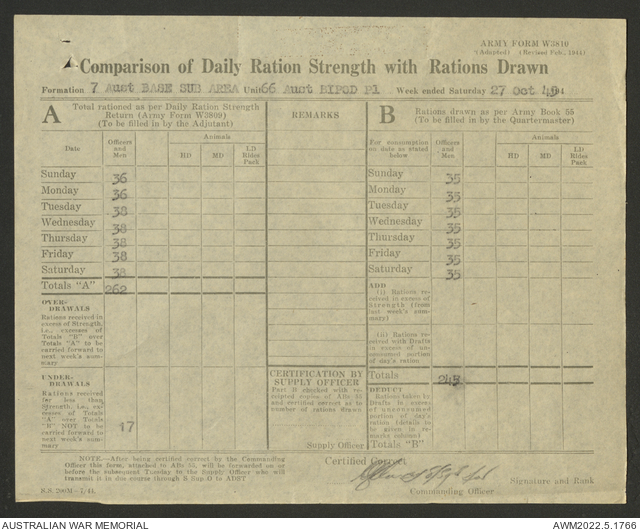 ARMY FORM W3810
(Adapted) (Revised Feb., 1944)
Comparison of Daily Ration Strength with Rations Drawn
Formation 7 Aust BASE SUB AREA Unit 66 Aust BIPOD Pl Week ended Saturday 27 Oct 45 194
A
Total rationed as per Daily Ration Strength
Return (Army Form W3809)
(To be filled in by the Adjutant)
REMARKS
B
Rations drawn as per Army Book 55
(To be filled in by the Quartermaster)
Date
Officers and Men
Animals
HD
MD
LD Rides Pack
For consumption on date as stated below
Officers and Men
Animals
HD
MD
LD Rides Pack
Sunday 36 Sunday 35
Monday 36 Monday 35
Tuesday 38 Tuesday 35
Wednesday 38 Wednesday 35
Thursday 38 Thursday 35
Friday 38 Friday 35
Saturday 38 Saturday 35
Totals "A" 262
ADD
(i) Rations received in excess of Strength (from last week's summary)
(ii) Rations received with Drafts in excess of unconsumed portion of day's ration
OVER-DRAWALS
Rations received in excess of Strength, i.e., excesses of Totals "B" over Totals "A" to be carried forward to next week's summary
CERTIFICATION BY SUPPLY OFFICER
Part B checked with receipted copies of Abs 55 and certified correct as to number of rations drawn
Supply Officer
Totals 245
UNDER-DRAWALS
Rations received far less than Strength, i.e., excesses of Totals "A" over Totals "B" NOT to be carried forward to next week's summary
17
DEDUCT
Rations taken by Drafts in excess of unconsumed portion of day's ration (details to be given in remarks column)
Totals "B"
NOTE—After being certified correct by the Commanding
Officer this form, attached to ABs 55, will be forwarded on or
before the subsequent Tuesday to the Supply Officer who will
transmit it in due course through B Sup O to ADST
Certified Correct
Signature and Rank
Commanding Officer
AUSTRALIAN WAR MEMORIAL
AWM2022.5.1766